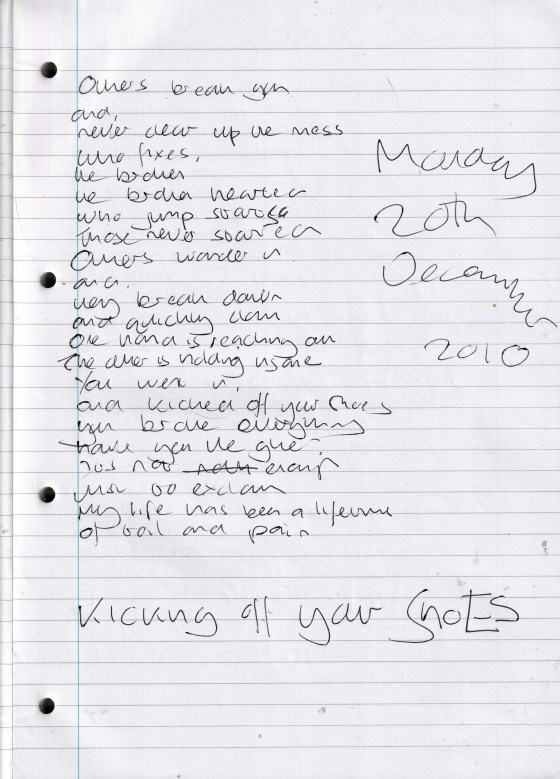 Others break you
and,
never clear up the mess
who fixes,
the broken
the broken hearted
who jump started
those never started
Others wander in
and,
they break down
and quickly
One hand is reaching out
the other is holding insane
You went in,
and kicked off your shoes
you broke everything
have you the glue?
Just not enough
just to explain
My life has been a lifetime
of toil and pain
Kicking off your SHOES
Monday
20th
December
2010